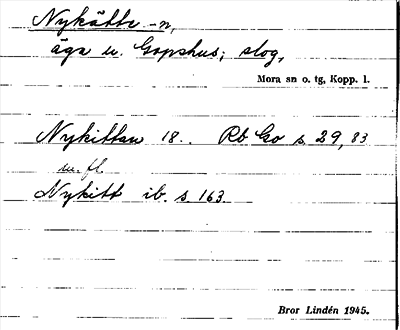 Nykätte -n,
äga u. Gopshus; slog,
Mora sn o. tg, Kopp. l.
Nykittan 18.. Rb Go s. 29, 83
m. fl.
Nykitt ib. s. 163.
Bror Lindén 1945.